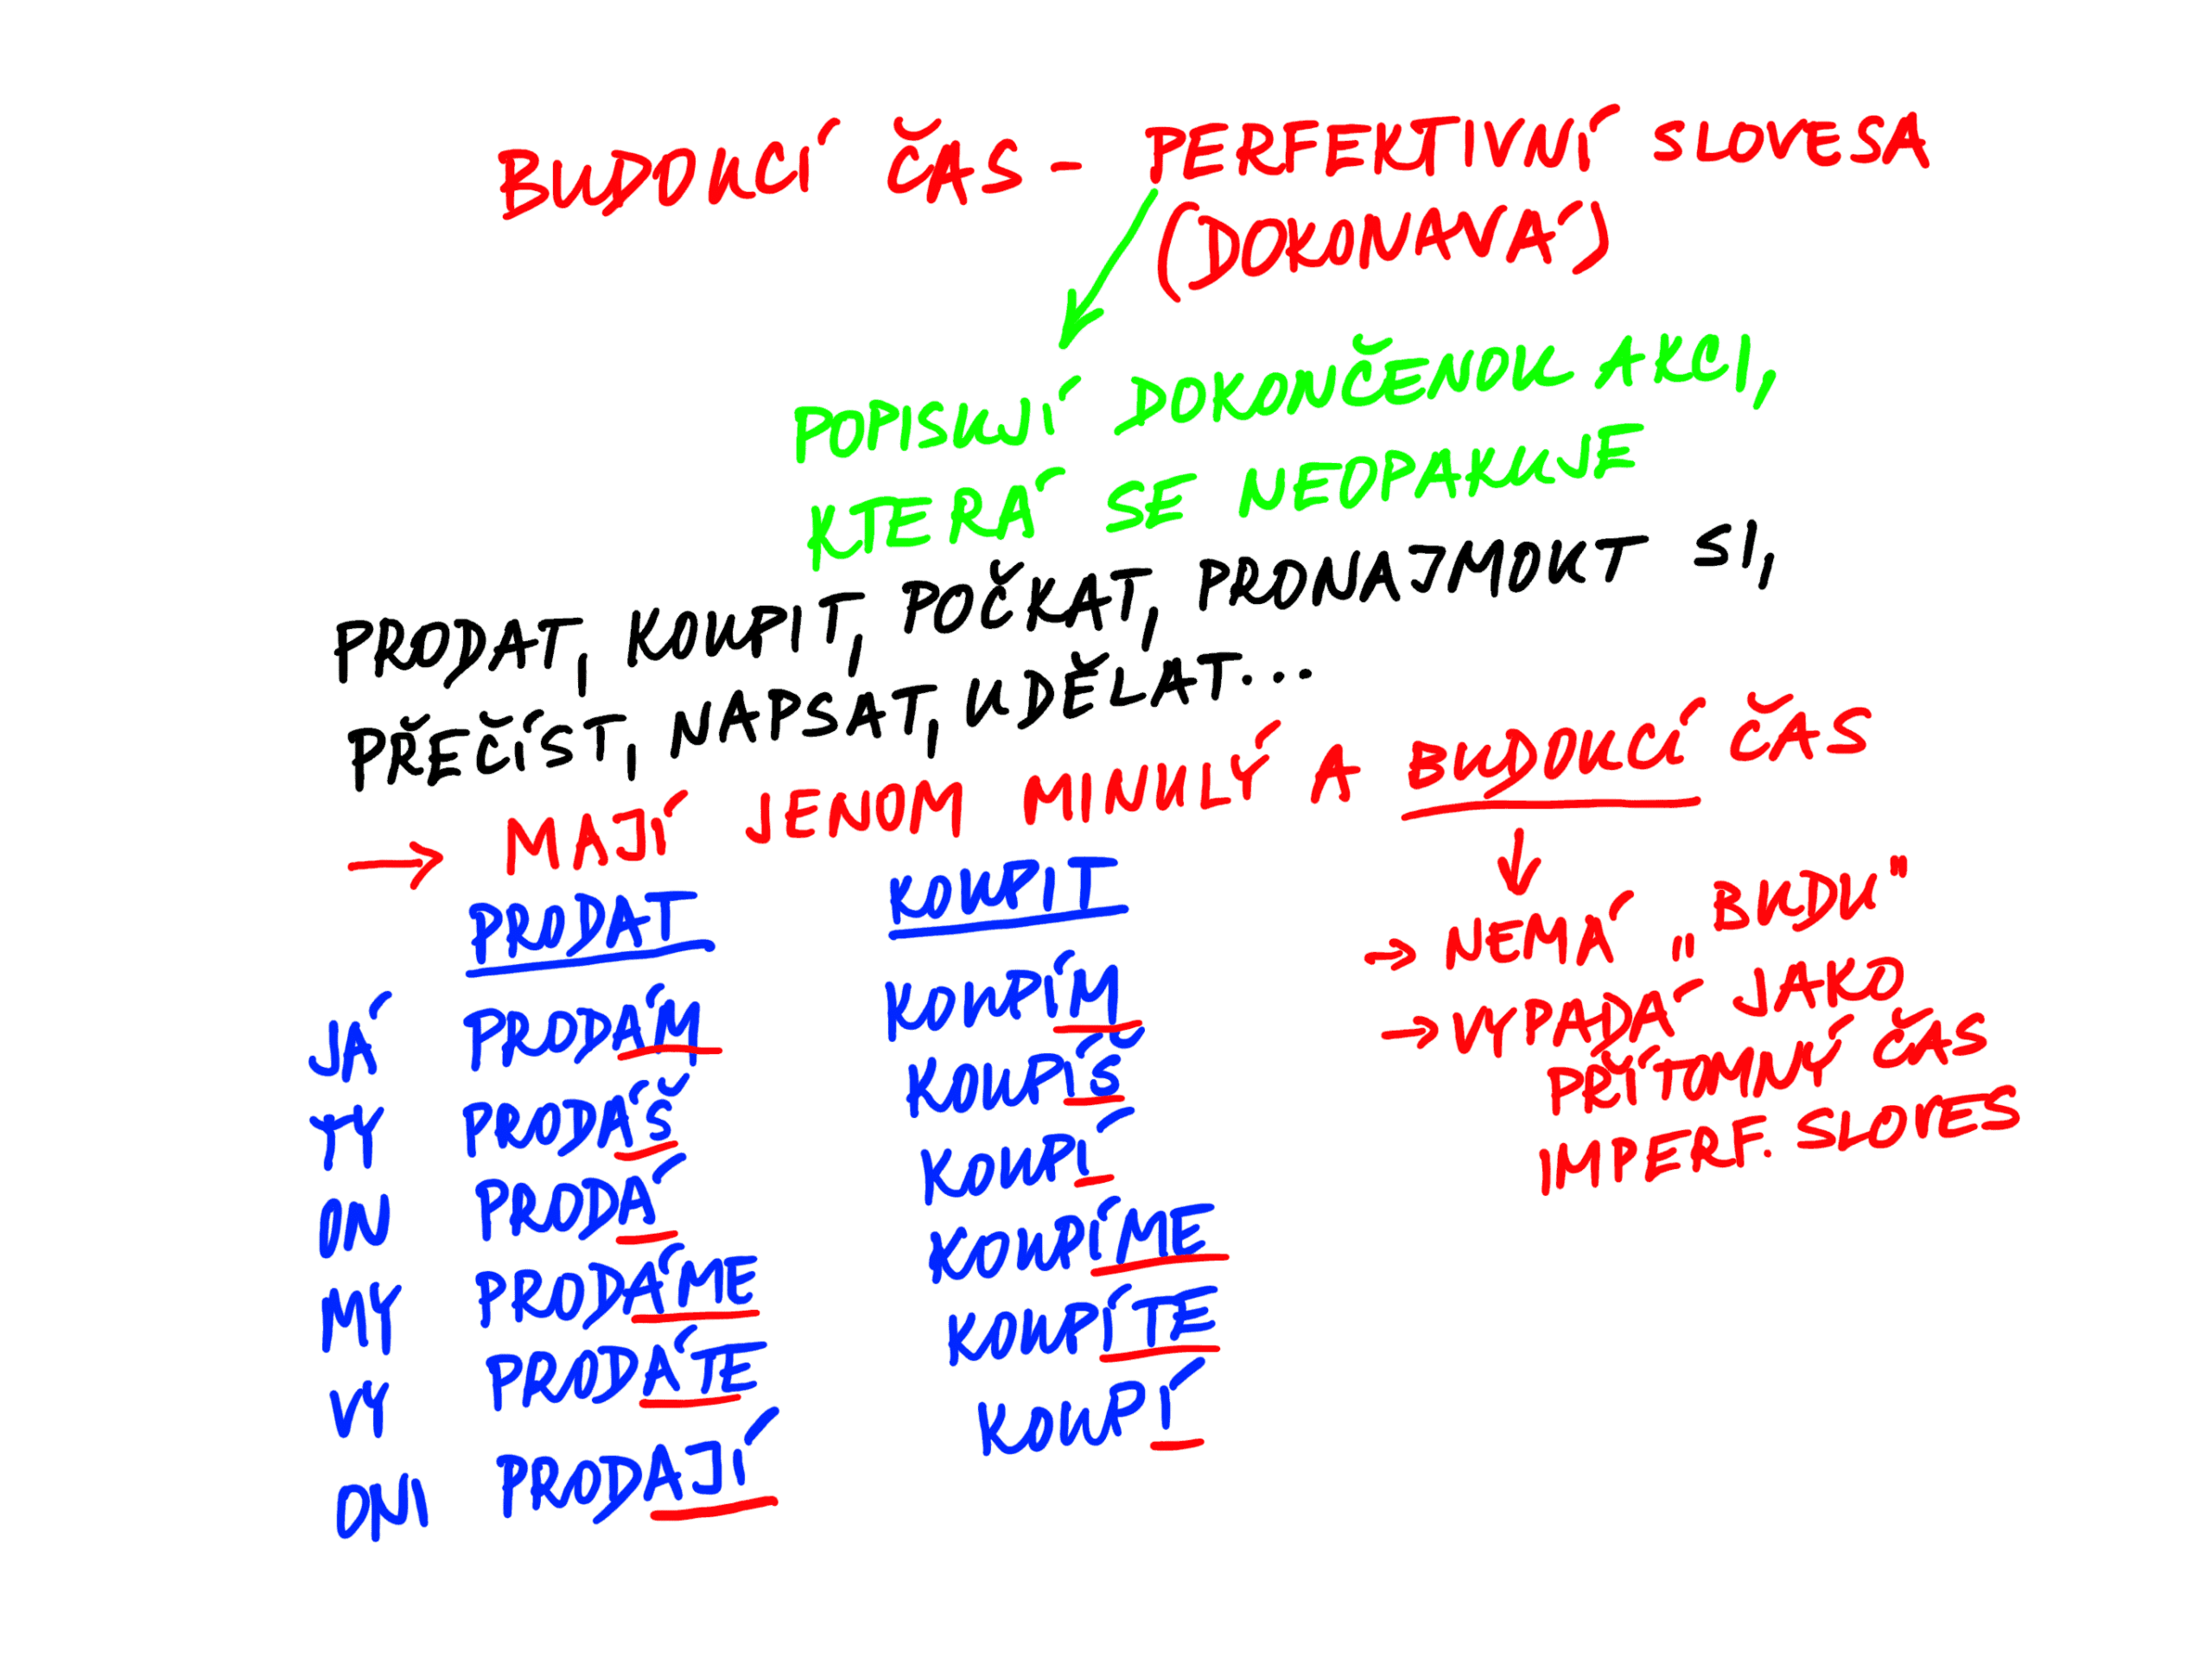 BUDOUCÍ ČAS - PERFEKTIVNÍ SLOVESA
(DOKONAVÁ)
POPISUJÍ DOKONČENOU AKCI,
KTERÁ SE NEOPAKUJE
PRODAT, KOUPIT, POČKAT, PRONAJMOUT SI,
PŘEČÍST, NAPSAT, UDĚLAT...
→ MAJÍ JENOM MINULÝ A BUDOUCÍ ČAS
↓
→ NEMÁ „BUDU"
→ VYPADÁ JAKO
PŘÍTOMNÝ ČAS
IMPERF. SLOVES
PRODAT KOUPIT
JÁ PRODÁM KOUPÍM
TY PRODÁŠ KOUPÍŠ
ON PRODÁ KOUPÍ
MY PRODÁME KOUPÍME
VY PRODÁTE KOUPÍTE
ONI PRODAJÍ KOUPÍ